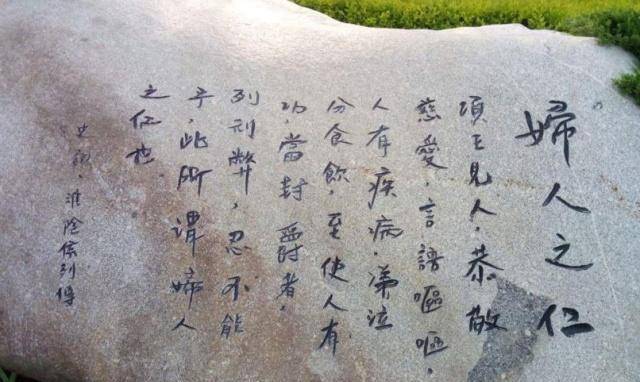 婦人之仁
項王見人,恭敬
慈愛,言語嘔嘔,
人有疾病,涕泣
分食飲,至使人有
功,當封爵者,
印刓弊,忍不能
予,此所謂婦人
之仁也.
史記.淮陰侯列傳